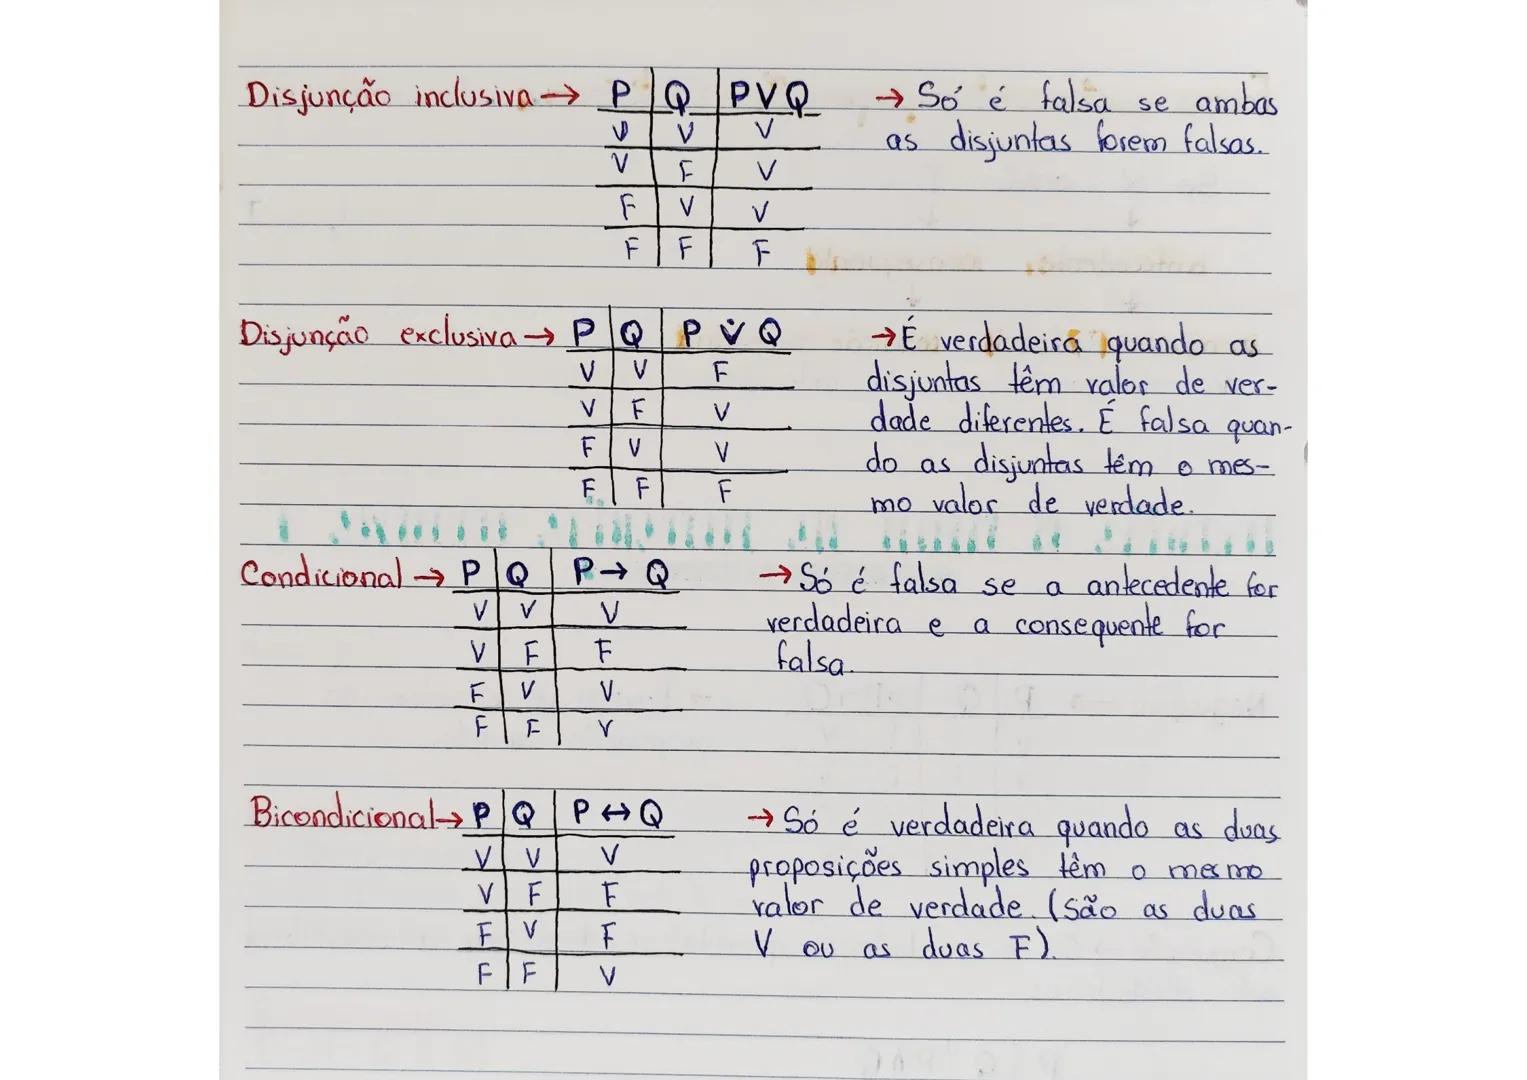 Disjunção inclusiva → P Q P V Q → Só é falsa se ambas
V V V as disjuntas forem falsas.
V F V
F V V
F F F
Disjunção exclusiva → P Q P V̇ Q → É verdadeira quando as
V V F disjuntas têm valor de ver-
V F V dade diferentes. É falsa quan-
F V V do as disjuntas têm o mes-
F F F mo valor de verdade.
Condicional → P Q P → Q → Só é falsa se a antecedente for
V V V verdadeira e a consequente for
V F F falsa.
F V V
F F V
Bicondicional → P Q P ↔ Q → Só é verdadeira quando as duas
V V V proposições simples têm o mesmo
V F F valor de verdade. (São as duas
F V F V ou as duas F).
F F V